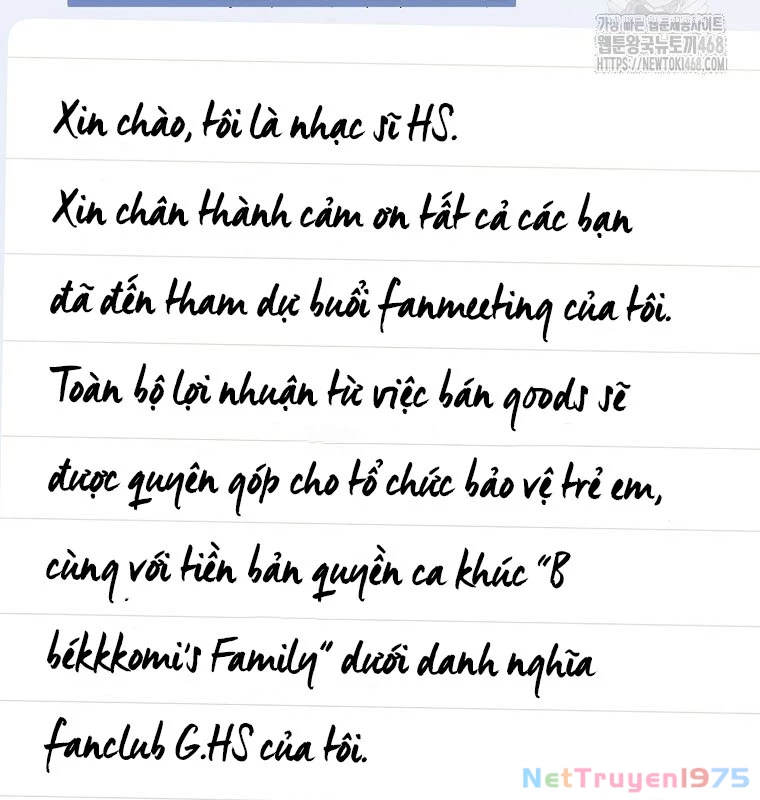 가장 빠른 웹툰제공사이트
웹툰왕국뉴토끼468
HTTPS://NEWTOKI468.COM
Xin chào, tôi là nhạc sĩ HS.
Xin chân thành cảm ơn tất cả các bạn
đã đến tham dự buổi fanmeeting của tôi.
Toàn bộ lợi nhuận từ việc bán goods sẽ
được quyên góp cho tổ chức bảo vệ trẻ em,
cùng với tiền bản quyền ca khúc "B
békkkomi's Family" dưới danh nghĩa
fanclub G.HS của tôi.
NetTruyen1975